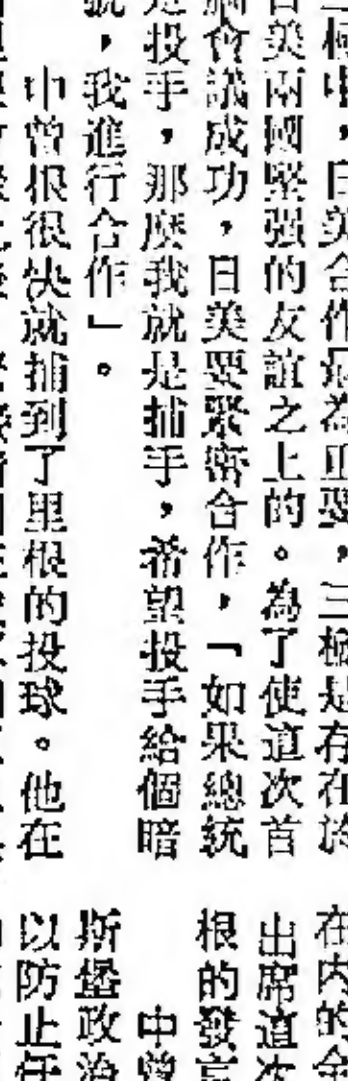 三極中，日美合作最為重要，三極是存在於
日美兩國堅强的友誼之上的。為了使這次首
腦會議成功，日美要緊密合作，﹁如果總統
是投手，那麼我就是捕手，希望投手給個暗
號，我進行合作﹂。
中曾根很快就捕到了里根的投球。他在
在内的
出席這次
根的發言
中曾
斯堡政治
以防止任